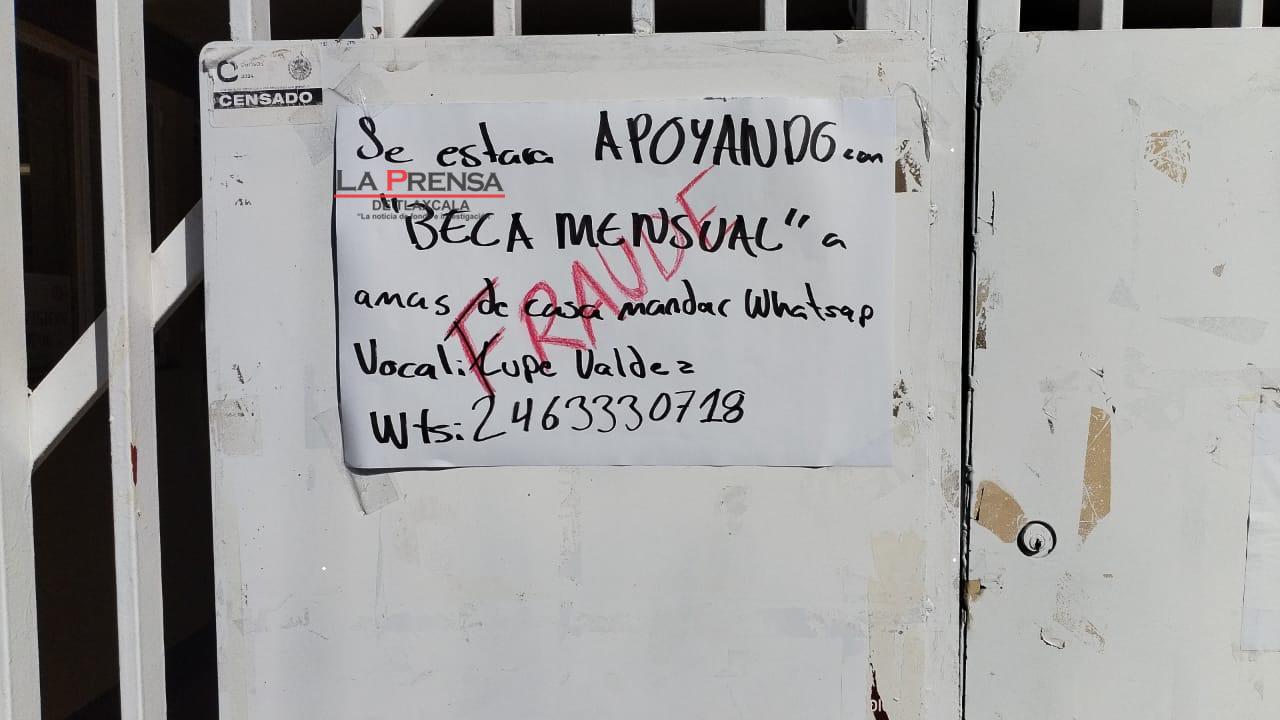 CENSADO
Se estara APOYANDO con
LA PRENSA
DE TLAXCALA
"La noticia de fondo e investigación"
"BECA MENSUAL" a
amas de casa mandar Whatsap
FRAUDE
Vocal: Lupe Valdez
Wts: 2463330718